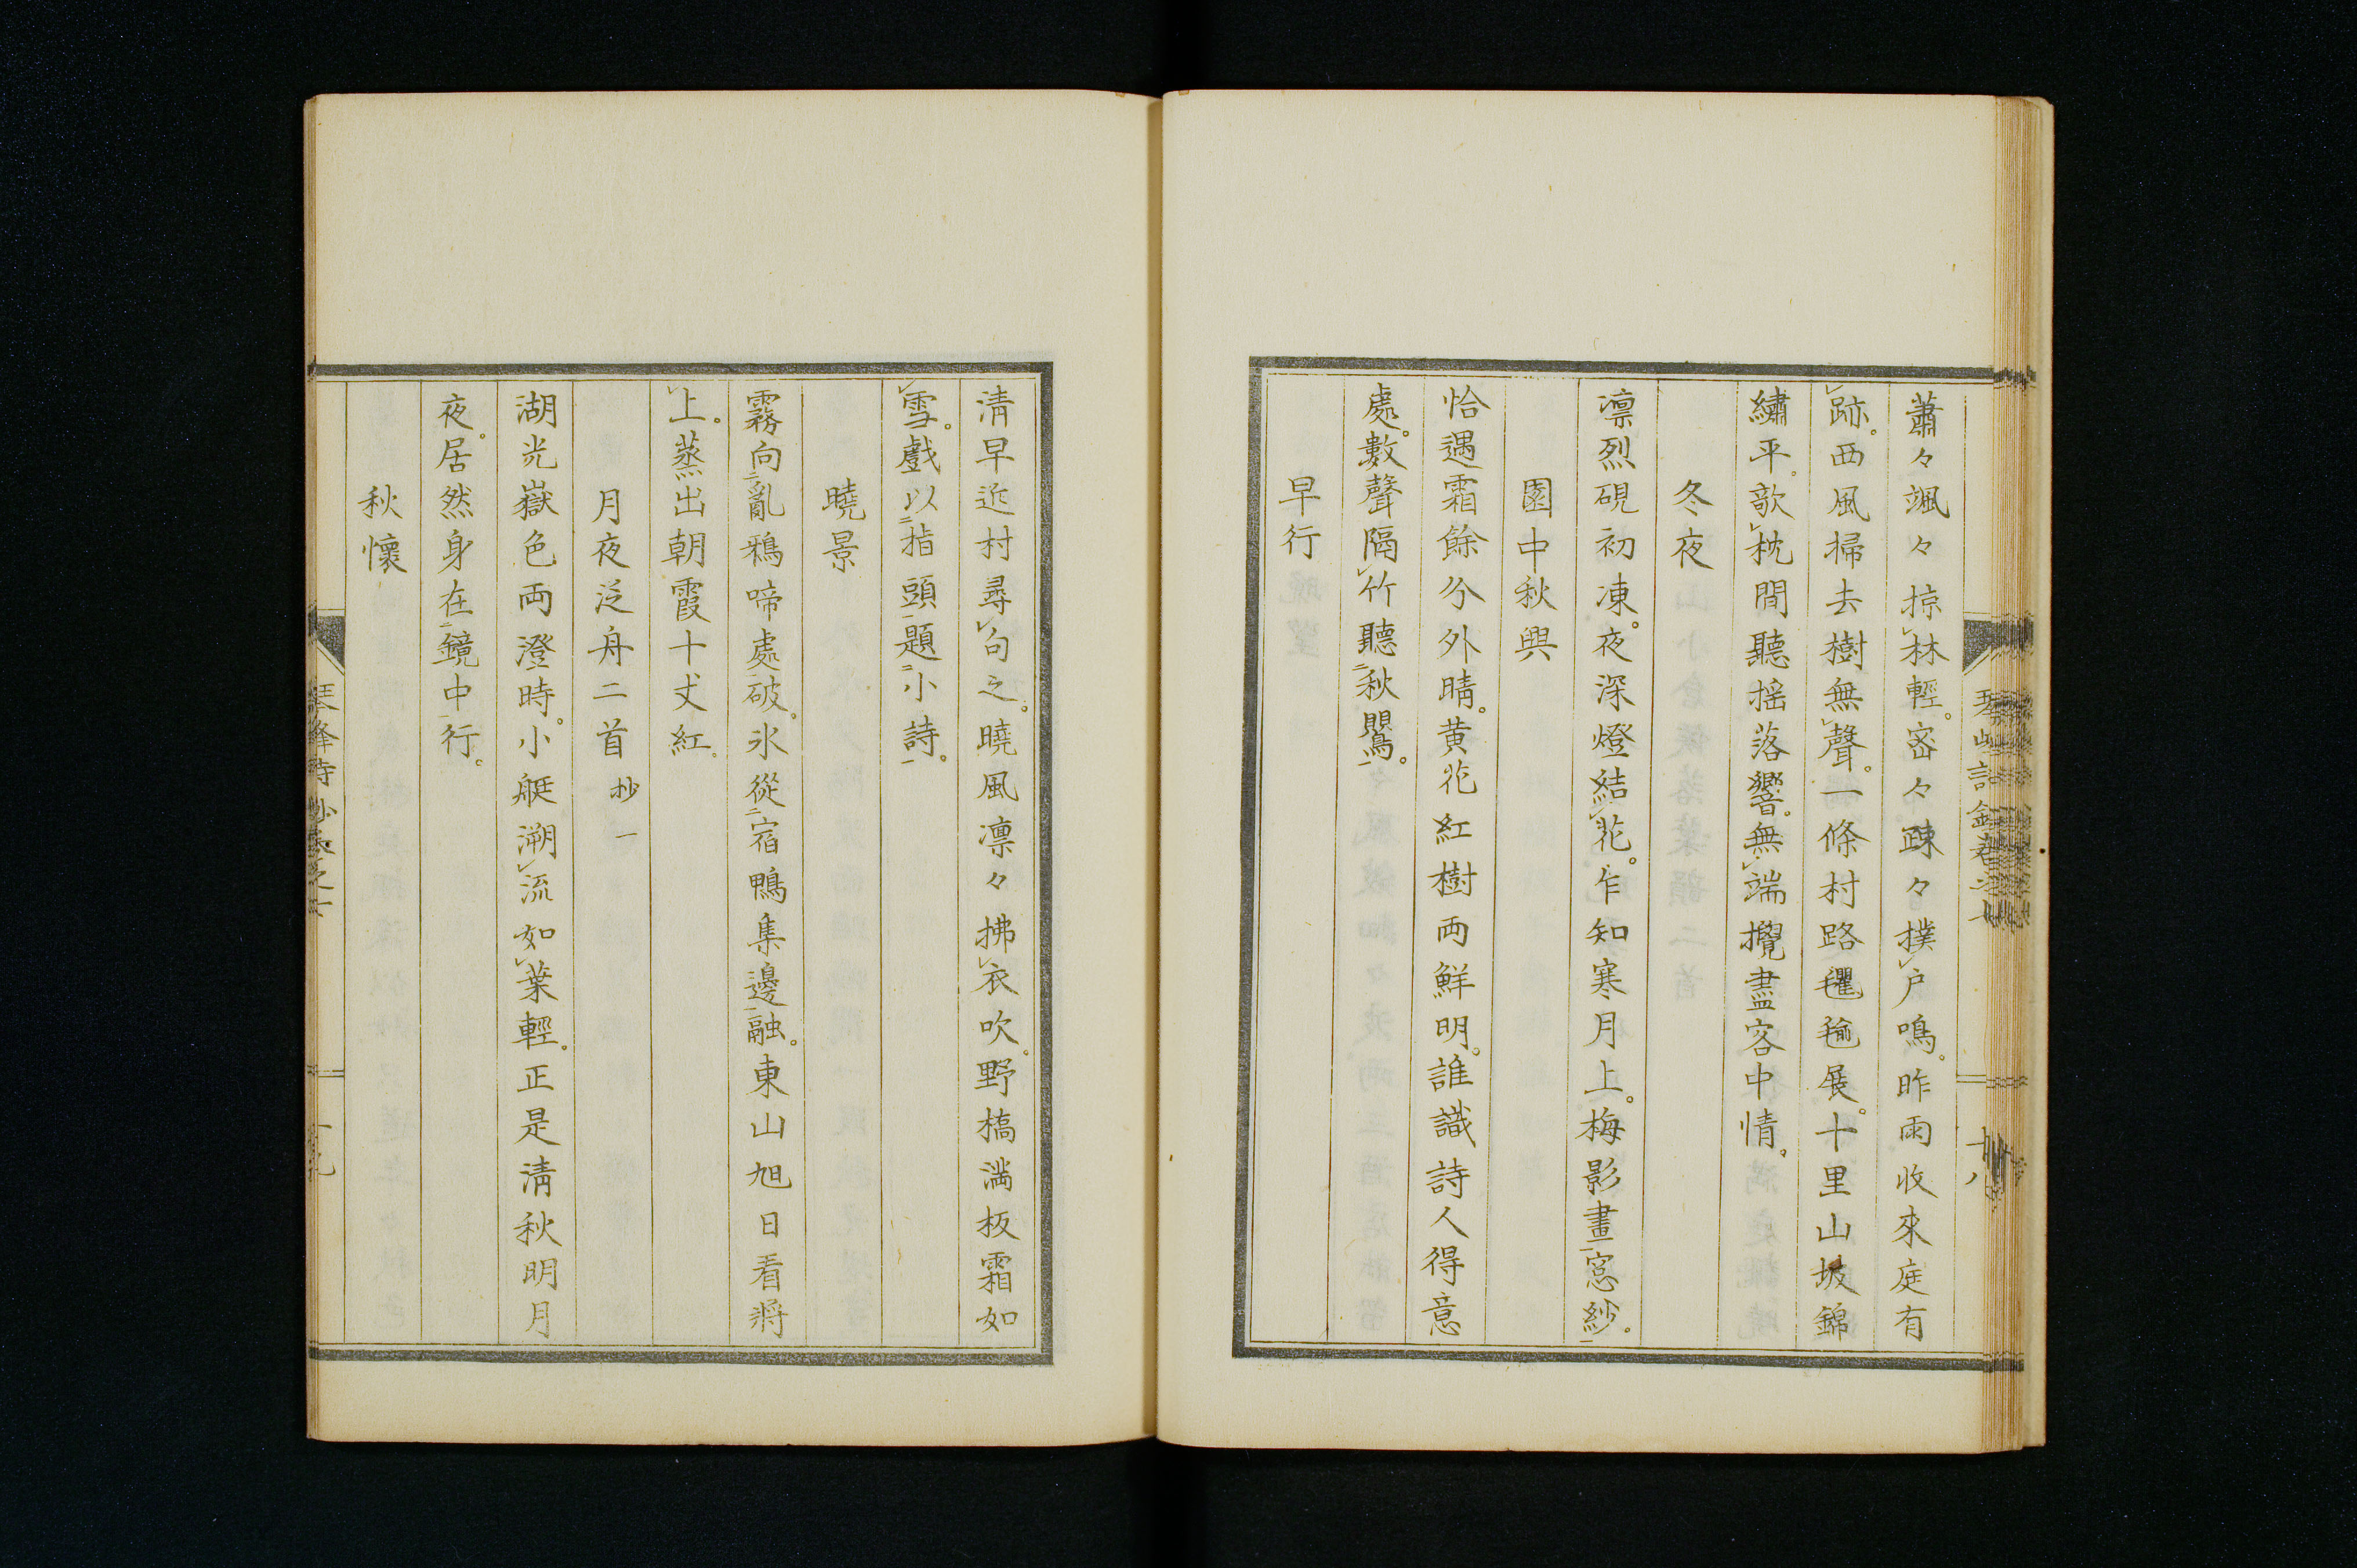 蕭々颯々掠林輕。密々疎々撲户鳴。昨雨收來庭有
跡。西風掃去樹無聲。一條村路氍毹展。十里山坡錦
繡平。欹枕間聽揺落響。無端攪盡客中情。
冬夜
凛烈硯初凍。夜深燈結花。乍知寒月上。梅影畫窓紗。
園中秋興
恰遇霜餘分外晴。黄花紅樹両鮮明。誰識詩人得意
處。數聲隔竹聽秋鸎。
早行
清早近村尋句之。曉風凛々拂衣吹。野橋満板霜如
雪。戲以指頭題小詩。
曉景
霧向亂鴉啼處破。氷從宿鴨集邊融。東山旭日看將
上。蒸出朝霞十丈紅。
月夜泛舟二首 抄一
湖光嶽色両澄時。小艇溯流如葉輕。正是淸秋明月
夜。居然身在鏡中行。
秋懷